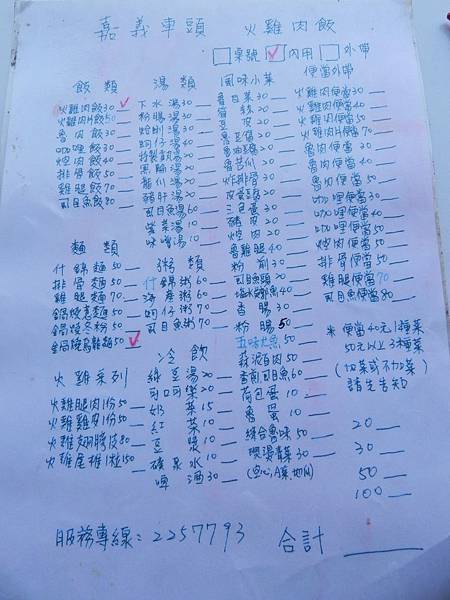 嘉義車頭 火雞肉飯
桌號 內用 外帶
飯類
火雞肉飯30
火雞肉片飯50
魯肉飯30
咖哩飯30
焢肉飯40
排骨飯50
雞腿飯70
虱目魚飯80
麵類
什錦麵50
排骨麵50
雞腿麵70
鍋燒意麵50
鍋燒冬粉50
鍋燒烏龍麵50
火雞系列
火雞腿肉1份50
火雞雞皮1份50
火雞翅膀1支80
火雞尾椎1粒150
湯類
下水湯30
粉腸湯30
蛤蜊湯30
蚵仔湯40
特製
黑輪湯20
龍仔湯20
豬肝湯30
虱目魚湯60
紫菜湯10
味噌湯10
粥類
什錦粥60
海產粥60
蚵仔粥70
虱目魚粥70
冷飲
綠豆湯20
可口可樂20
奶茶15
紅茶10
豆漿10
礦泉水10
啤酒30
風味小菜
魯白菜30
豆皮20
魯豆腐
魯油豆腐
魯苦瓜
炸排骨30
皮蛋豆腐
三色蛋30
豬皮20
焢肉20
魯雞腿40
粉
虱目魚頭20
40
香腸30
粉腸50
五味魷魚50
蒜泥白肉50
香煎虱目魚60
荷包蛋10
魯蛋10
綜合魯味50
燙青菜30
便當外帶
火雞肉便當30
火雞肉便當40
火雞肉片便當70
魯肉便當30
魯肉便當40
魯肉便當50
咖哩便當30
咖哩便當40
咖哩便當50
焢肉便當50
排骨便當50
雞腿便當70
虱目魚便當80
便當40元1種菜
50元以上3種菜
(加菜或不加菜)
請先告知
20
30
50
100
服務專線：2257793 合計